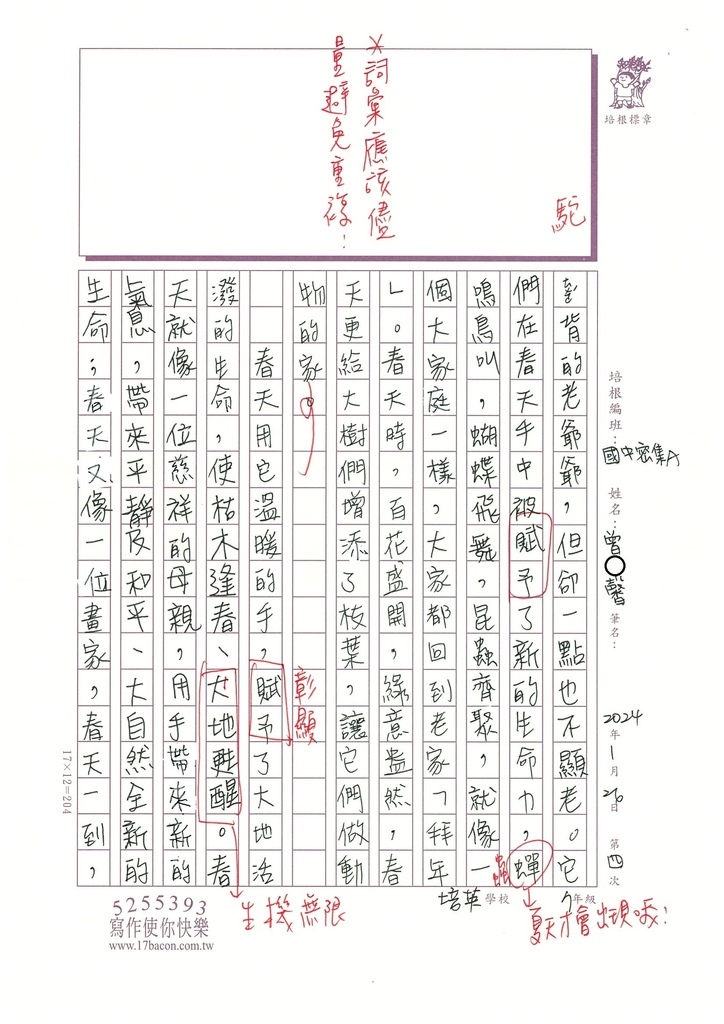 *詞彙應該儘
量避免重複!
駝
培根標章
駝背的老爺爺,但卻一點也不顯老。它
們在春天手中被賦予了新的生命力,蟬
鳴鳥叫,蝴蝶飛舞,昆蟲齊聚,就像一
個大家庭一樣,大家都回到老家「拜年
」。春天時,百花盛開,綠意盎然,春
天更給大樹們增添了枝葉,讓它們做動
物的家。
春天用它溫暖的手,賦予了大地活
潑的生命,使枯木逢春、大地甦醒。春
天就像一位慈祥的母親,用手帶來新的
氣息,帶來平靜及和平、大自然全新的
生命;春天又像一位畫家,春天一到,
彰顯
生機無限
蟲
夏天才會出現哦!
培根編班:國中密集A
姓名:曾〇馨
筆名:
2024年1月26日 第四次
培英學校 7年級
17×12=204
5255393
寫作使你快樂
www.17bacon.com.tw